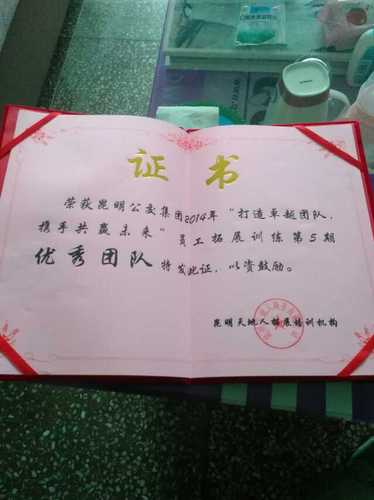 证书
荣获昆明公交集团2014年“打造卓越团队,
携手共赢未来”员工拓展训练第5期
优秀团队 特发此证，以资鼓励。
昆明天地人拓展培训机构